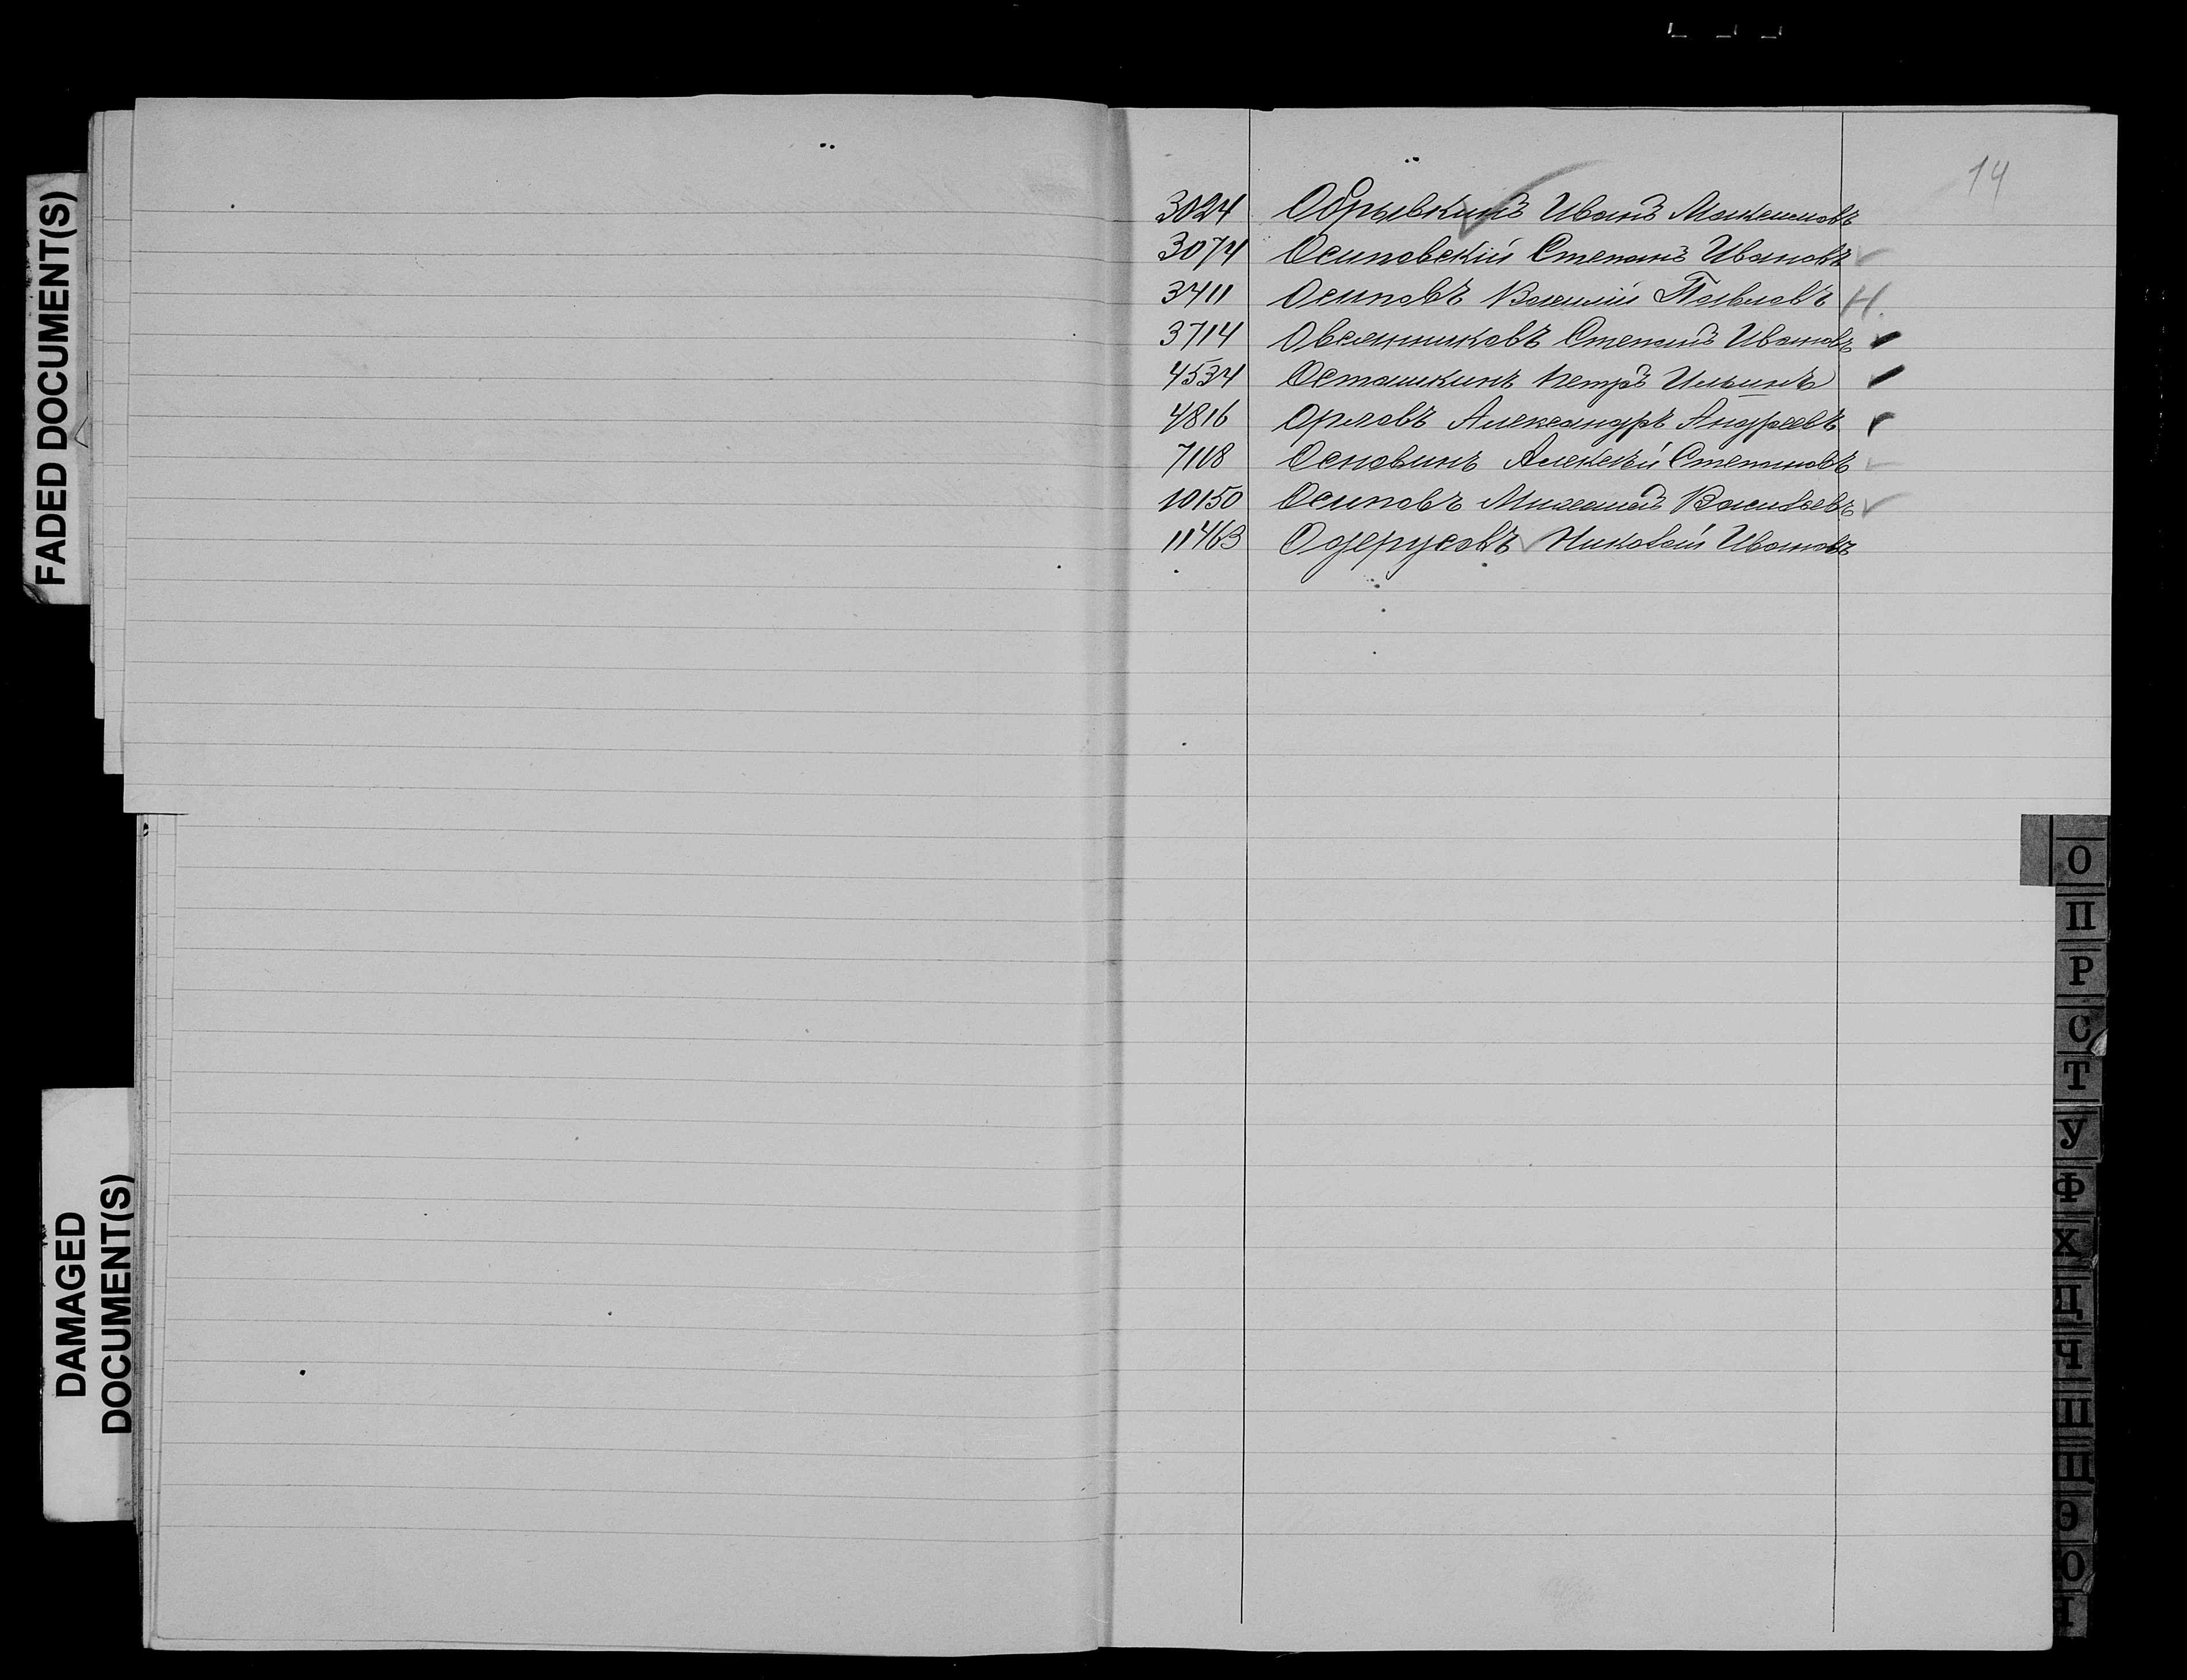 FADED DOCUMENT(S)
DAMAGED
DOCUMENT(S)
14
3024 Обрывкинъ Иванъ Максимовъ
3074 Осиповскій Степанъ Ивановъ
3411 Осиповъ Василій Павловъ Н.
3714 Овсянниковъ Степанъ Ивановъ
4534 Осташкинъ Петръ Ильинъ
4816 Орловъ Александръ Андреевъ
7118 Основинъ Алексѣй Степановъ
10150 Осиповъ Михаилъ Васильевъ
11463 Одерусовъ Николай Ивановъ
О
П
Р
С
Т
У
Ф
Х
Ц
Ч
Ш
Щ
Э
Ю